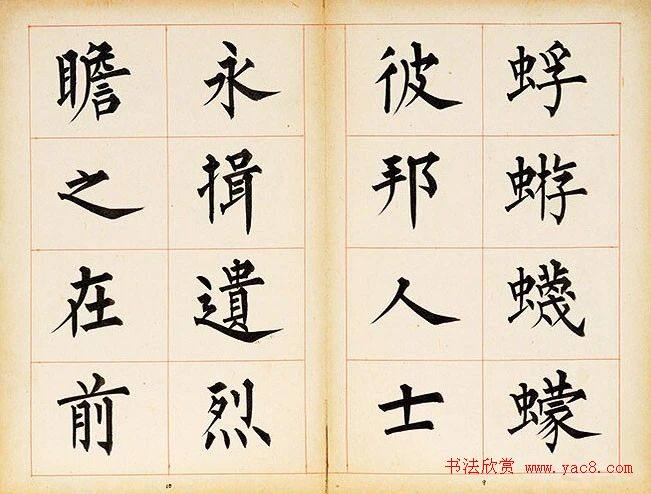 蜉蝣蠛蠓
彼邦人士
永揖遺烈
瞻之在前
9
10
书法欣赏 www.yac8.com